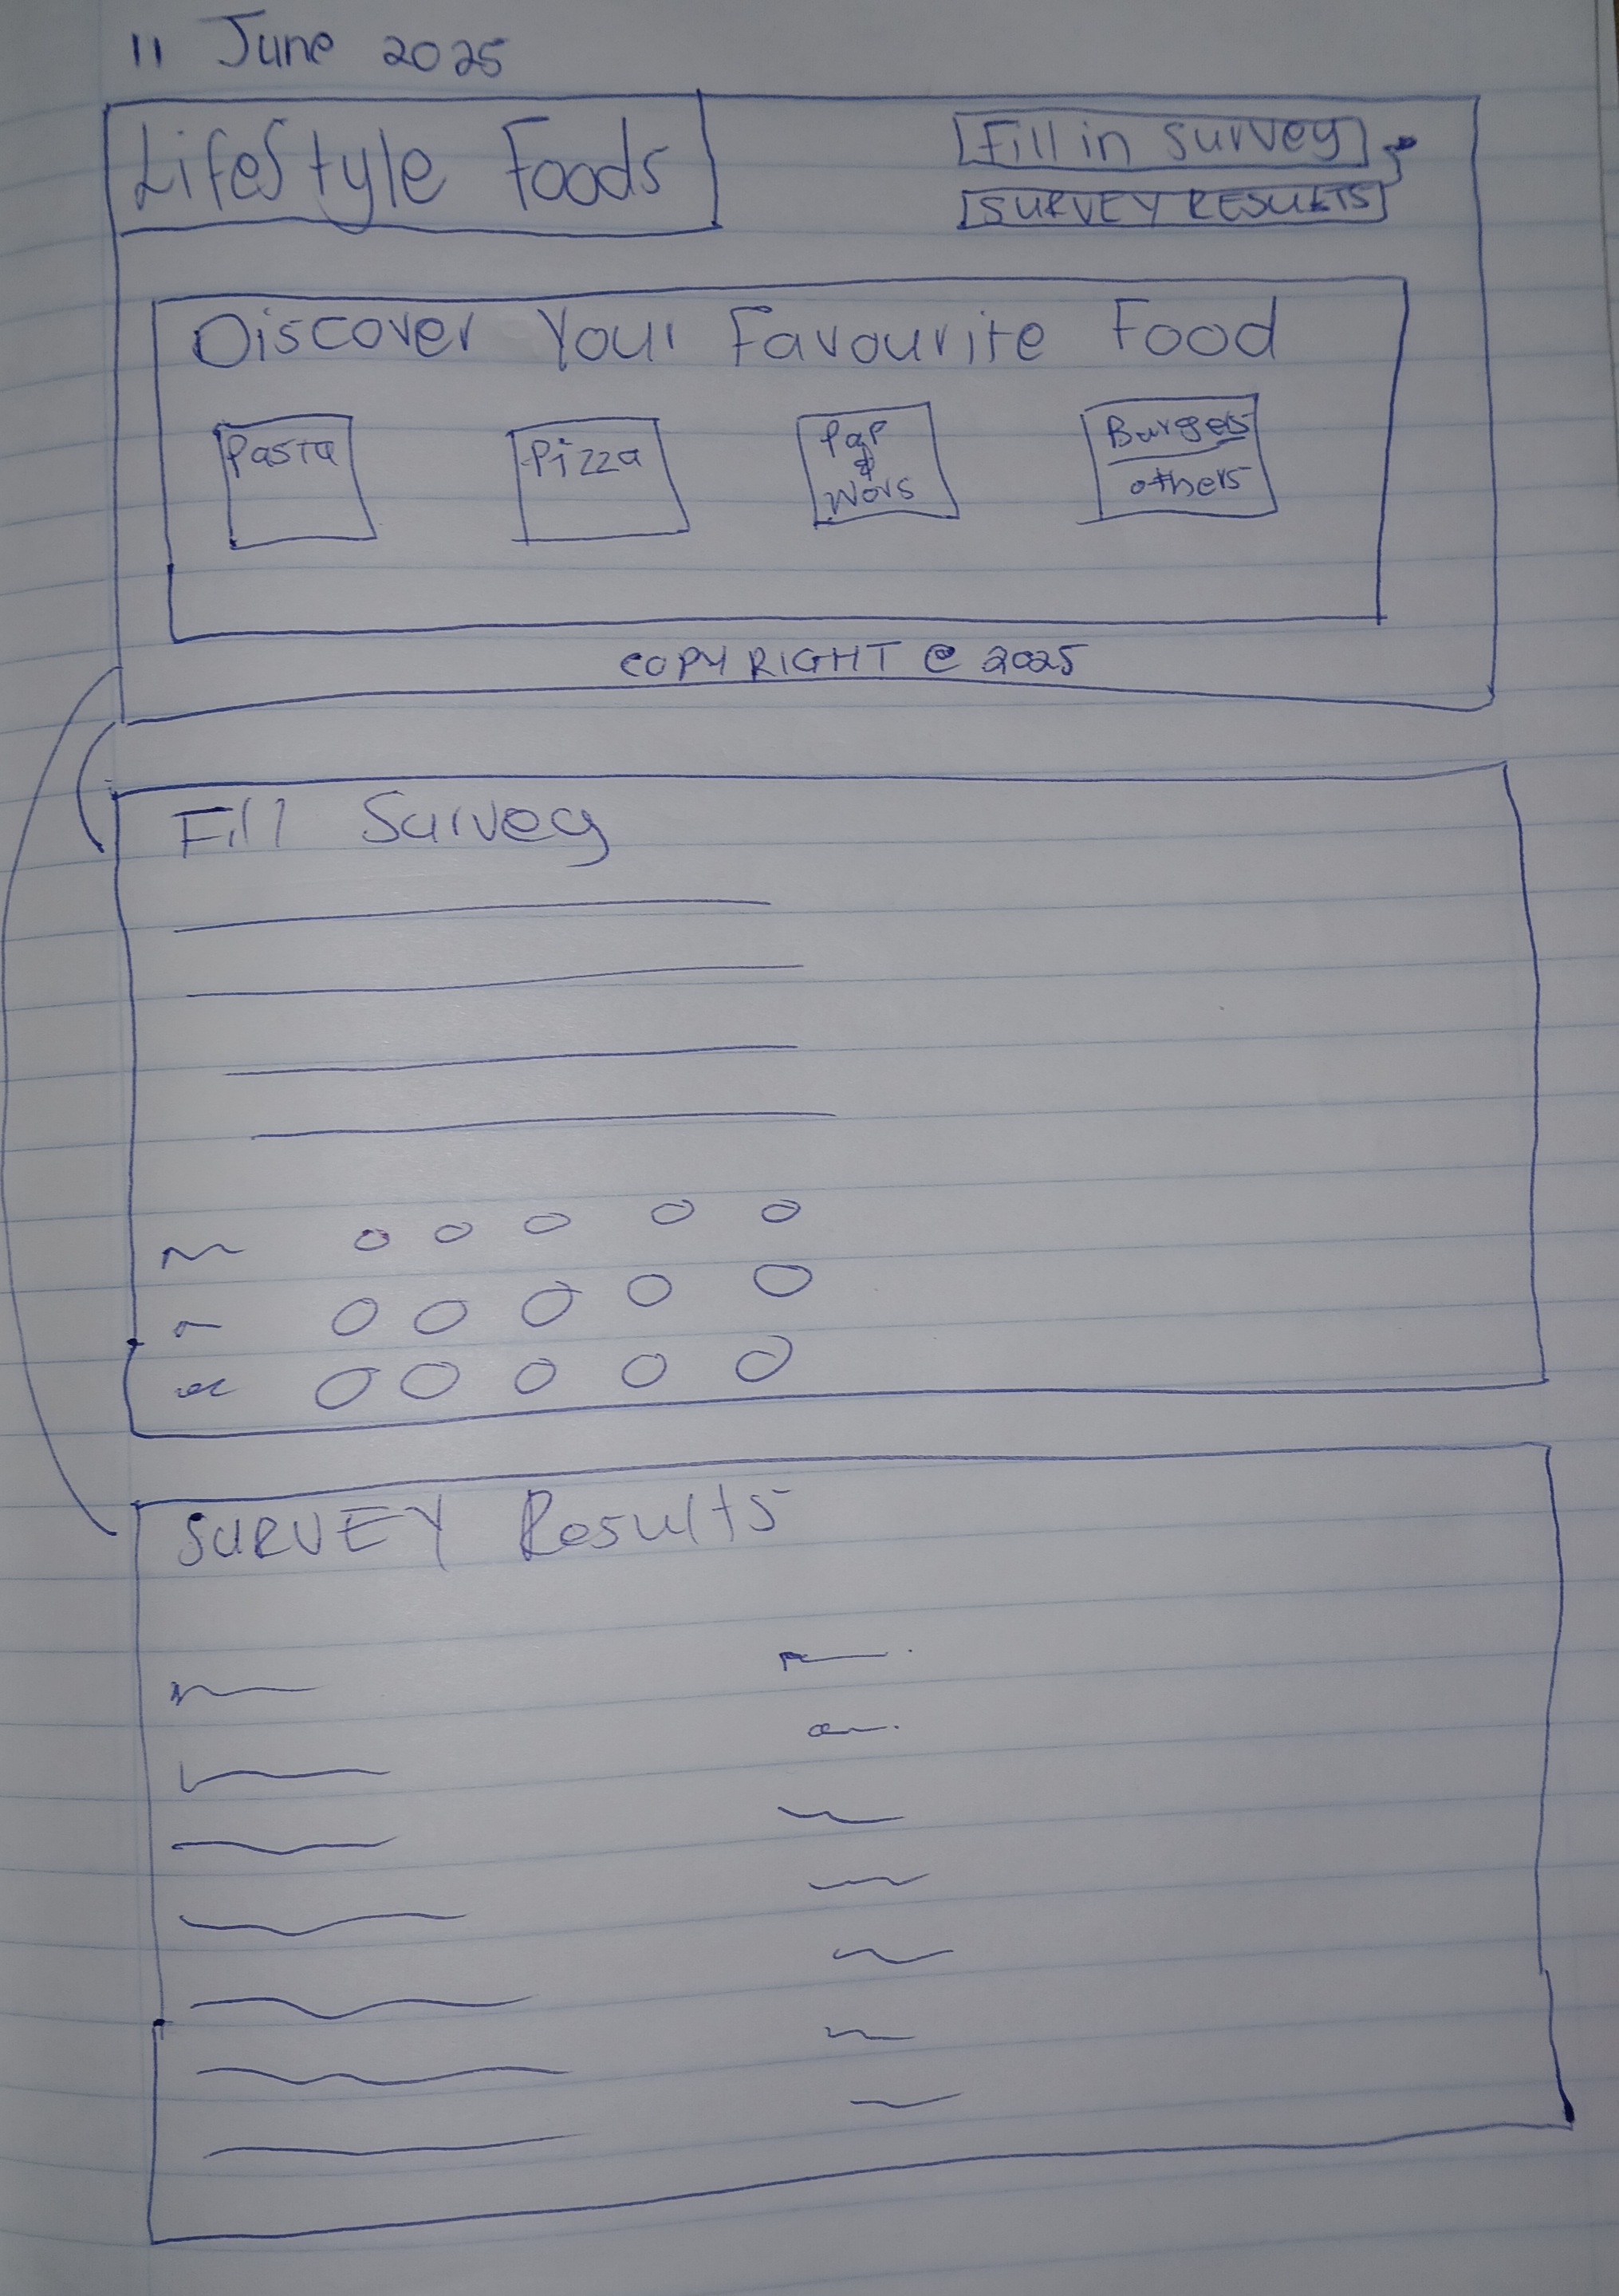 11 June 2025
Lifestyle Foods
Fill in survey
SURVEY RESULTS
Discover Your Favourite Food
Pasta
Pizza
Pap
&
Wors
Burgers
others
COPYRIGHT © 2025
Fill Survey
SURVEY Results